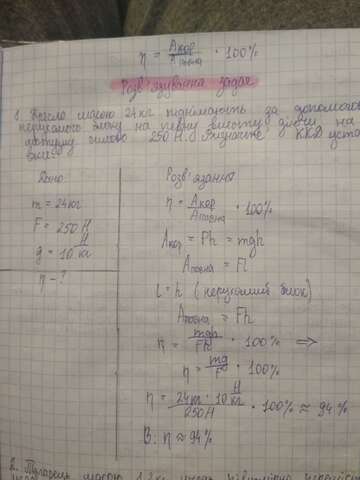 η = Aкор / Aповна · 100%
Розв'язування задач
1. Тіло масою 24 кг піднімають за допомогою
нерухомого блоку на певну висоту діючи на
мотузку силою 250 Н. Визначте ККД уста
Дано
Розв'язання
m = 24кг
F = 250 Н
g = 10 Н/кг
η - ?
η = Aкор / Aповна · 100%
Aкор = Ph = mgh
Aповна = Fl
l = h (нерухомий блок)
Aповна = Fh
η = mgh / Fh · 100% ⇒
η = mg / F · 100%
η = 24кг · 10 Н/кг / 250Н · 100% ≈ 94%
В: η ≈ 94%
2.